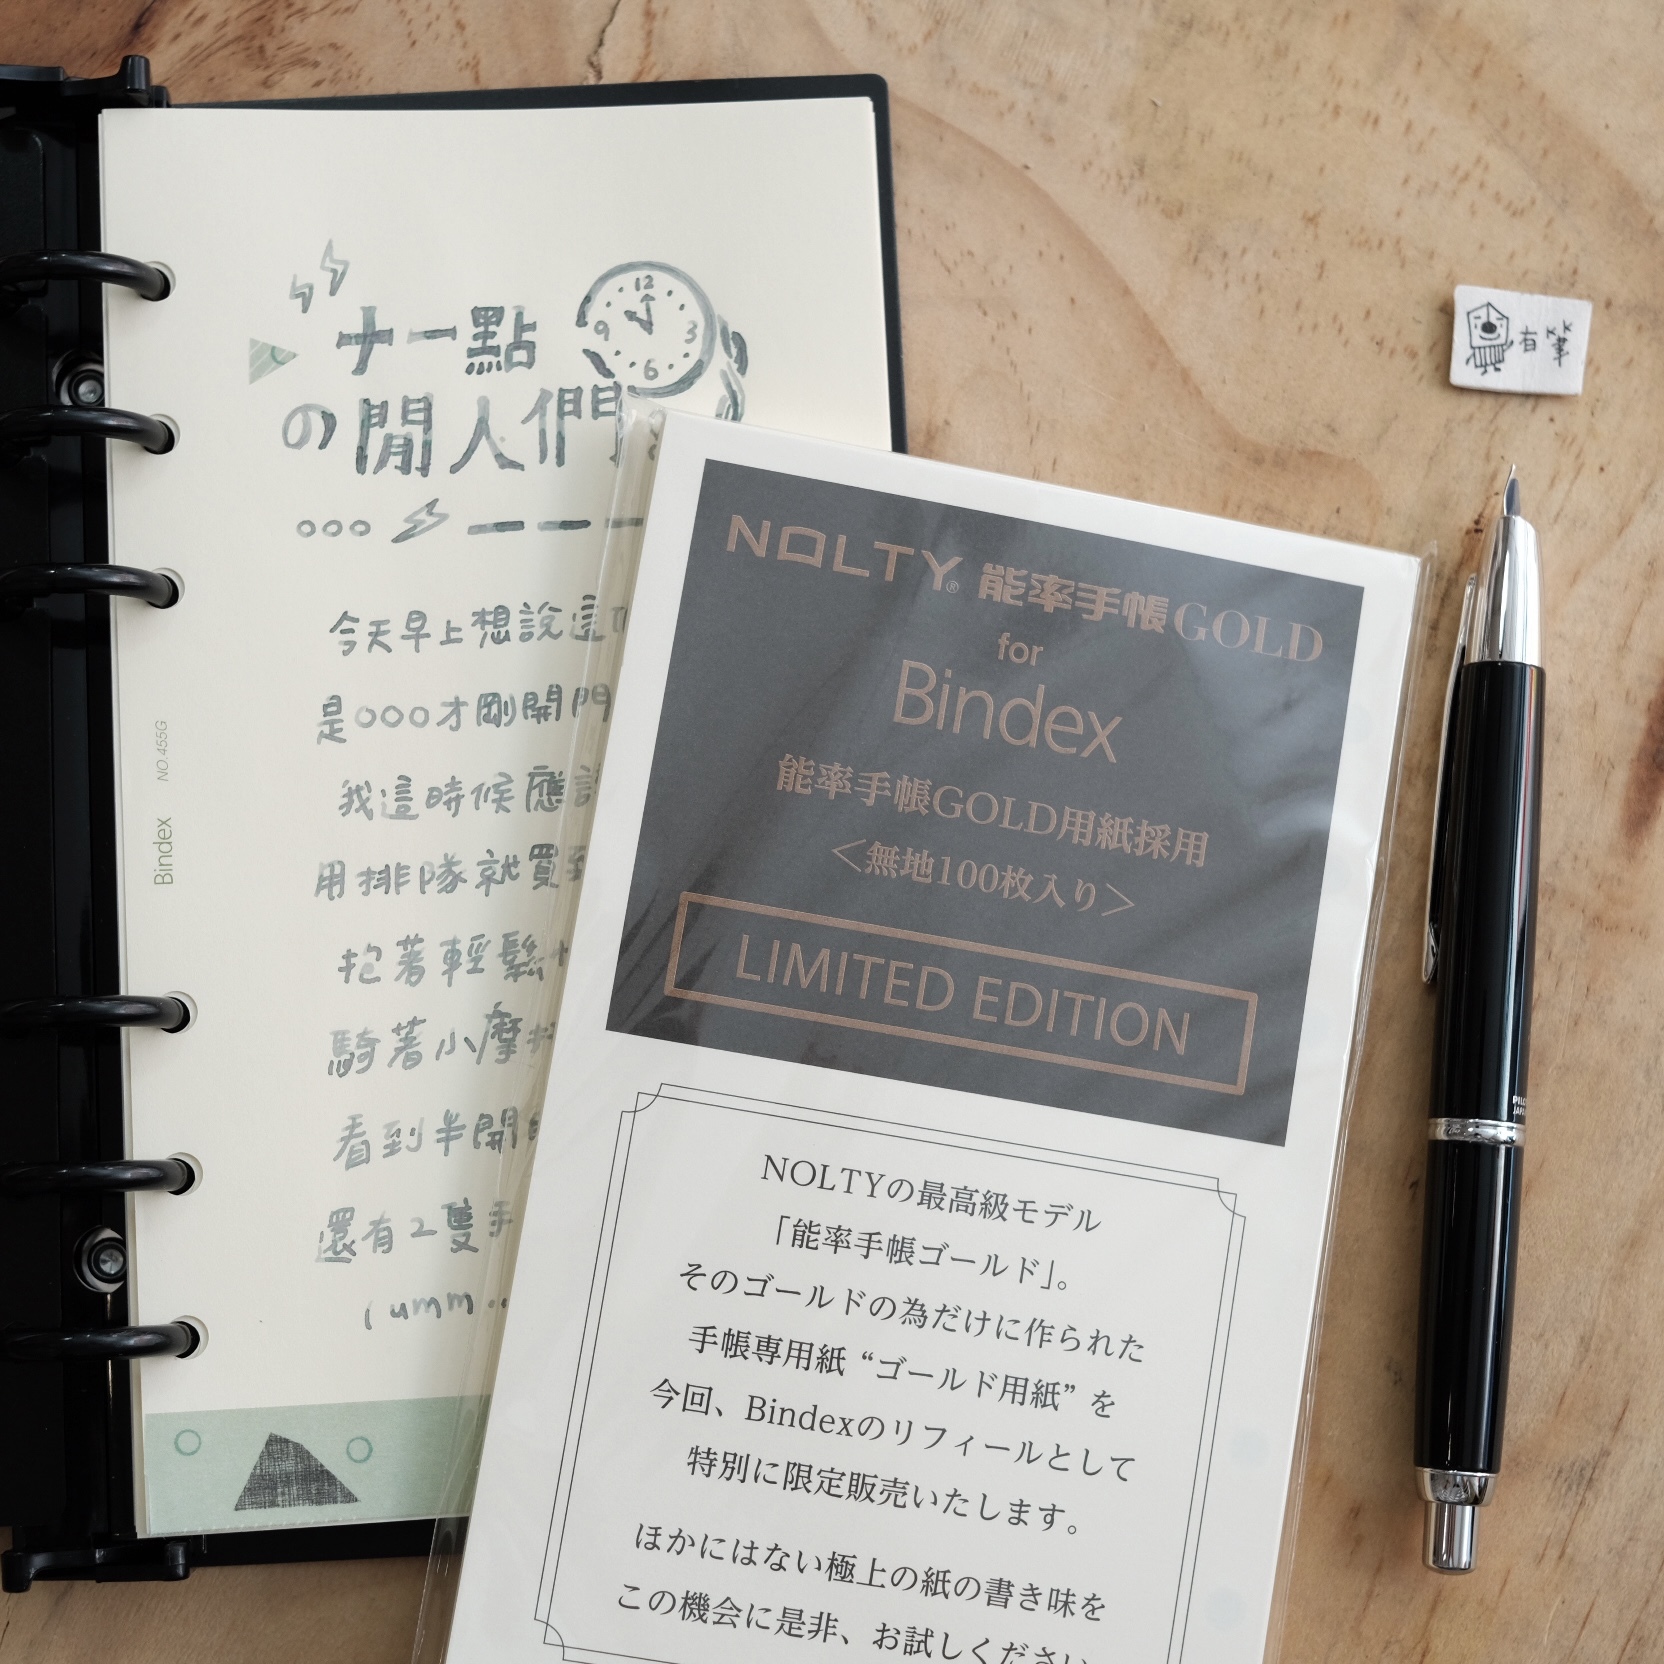 十一點
の閒人們
12
3
6
9
今天早上想說這
是○○○才剛開門
我這時候應
用排隊就買到
抱著輕鬆
騎著小摩
看到半開
還有2隻手
(umm..
Bindex NO.455G
NOLTY® 能率手帳GOLD
for
Bindex
能率手帳GOLD用紙採用
＜無地100枚入り＞
LIMITED EDITION
NOLTYの最高級モデル
「能率手帳ゴールド」。
そのゴールドの為だけに作られた
手帳専用紙“ゴールド用紙”を
今回、Bindexのリフィールとして
特別に限定販売いたします。
ほかにはない極上の紙の書き味を
この機会に是非、お試しください
有筆